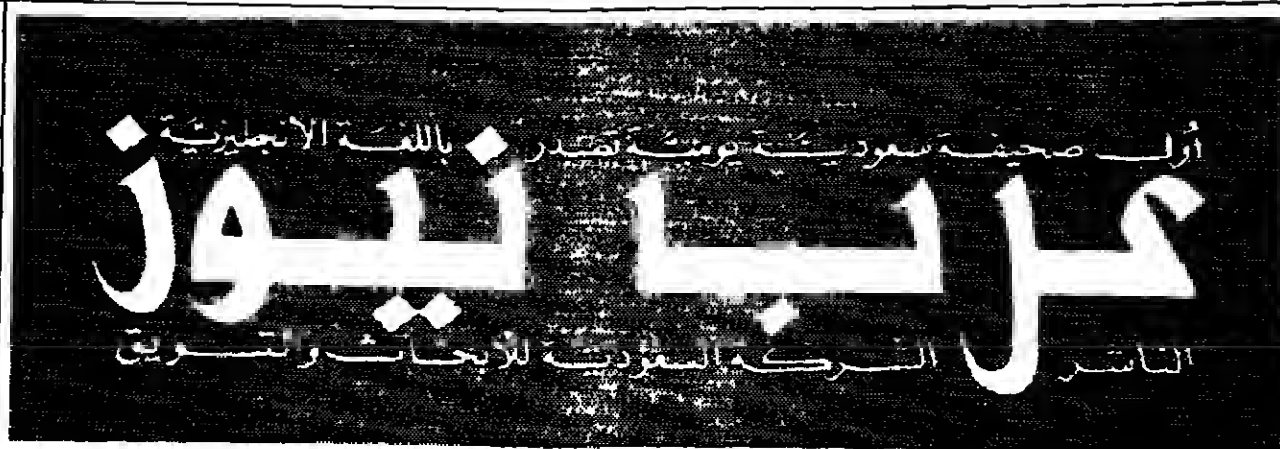 أول صحيفة سعودية يومية تصدر باللغة الانجليزية
عرب نيوز
الناشر الشركة السعودية للأبحاث والتسويق